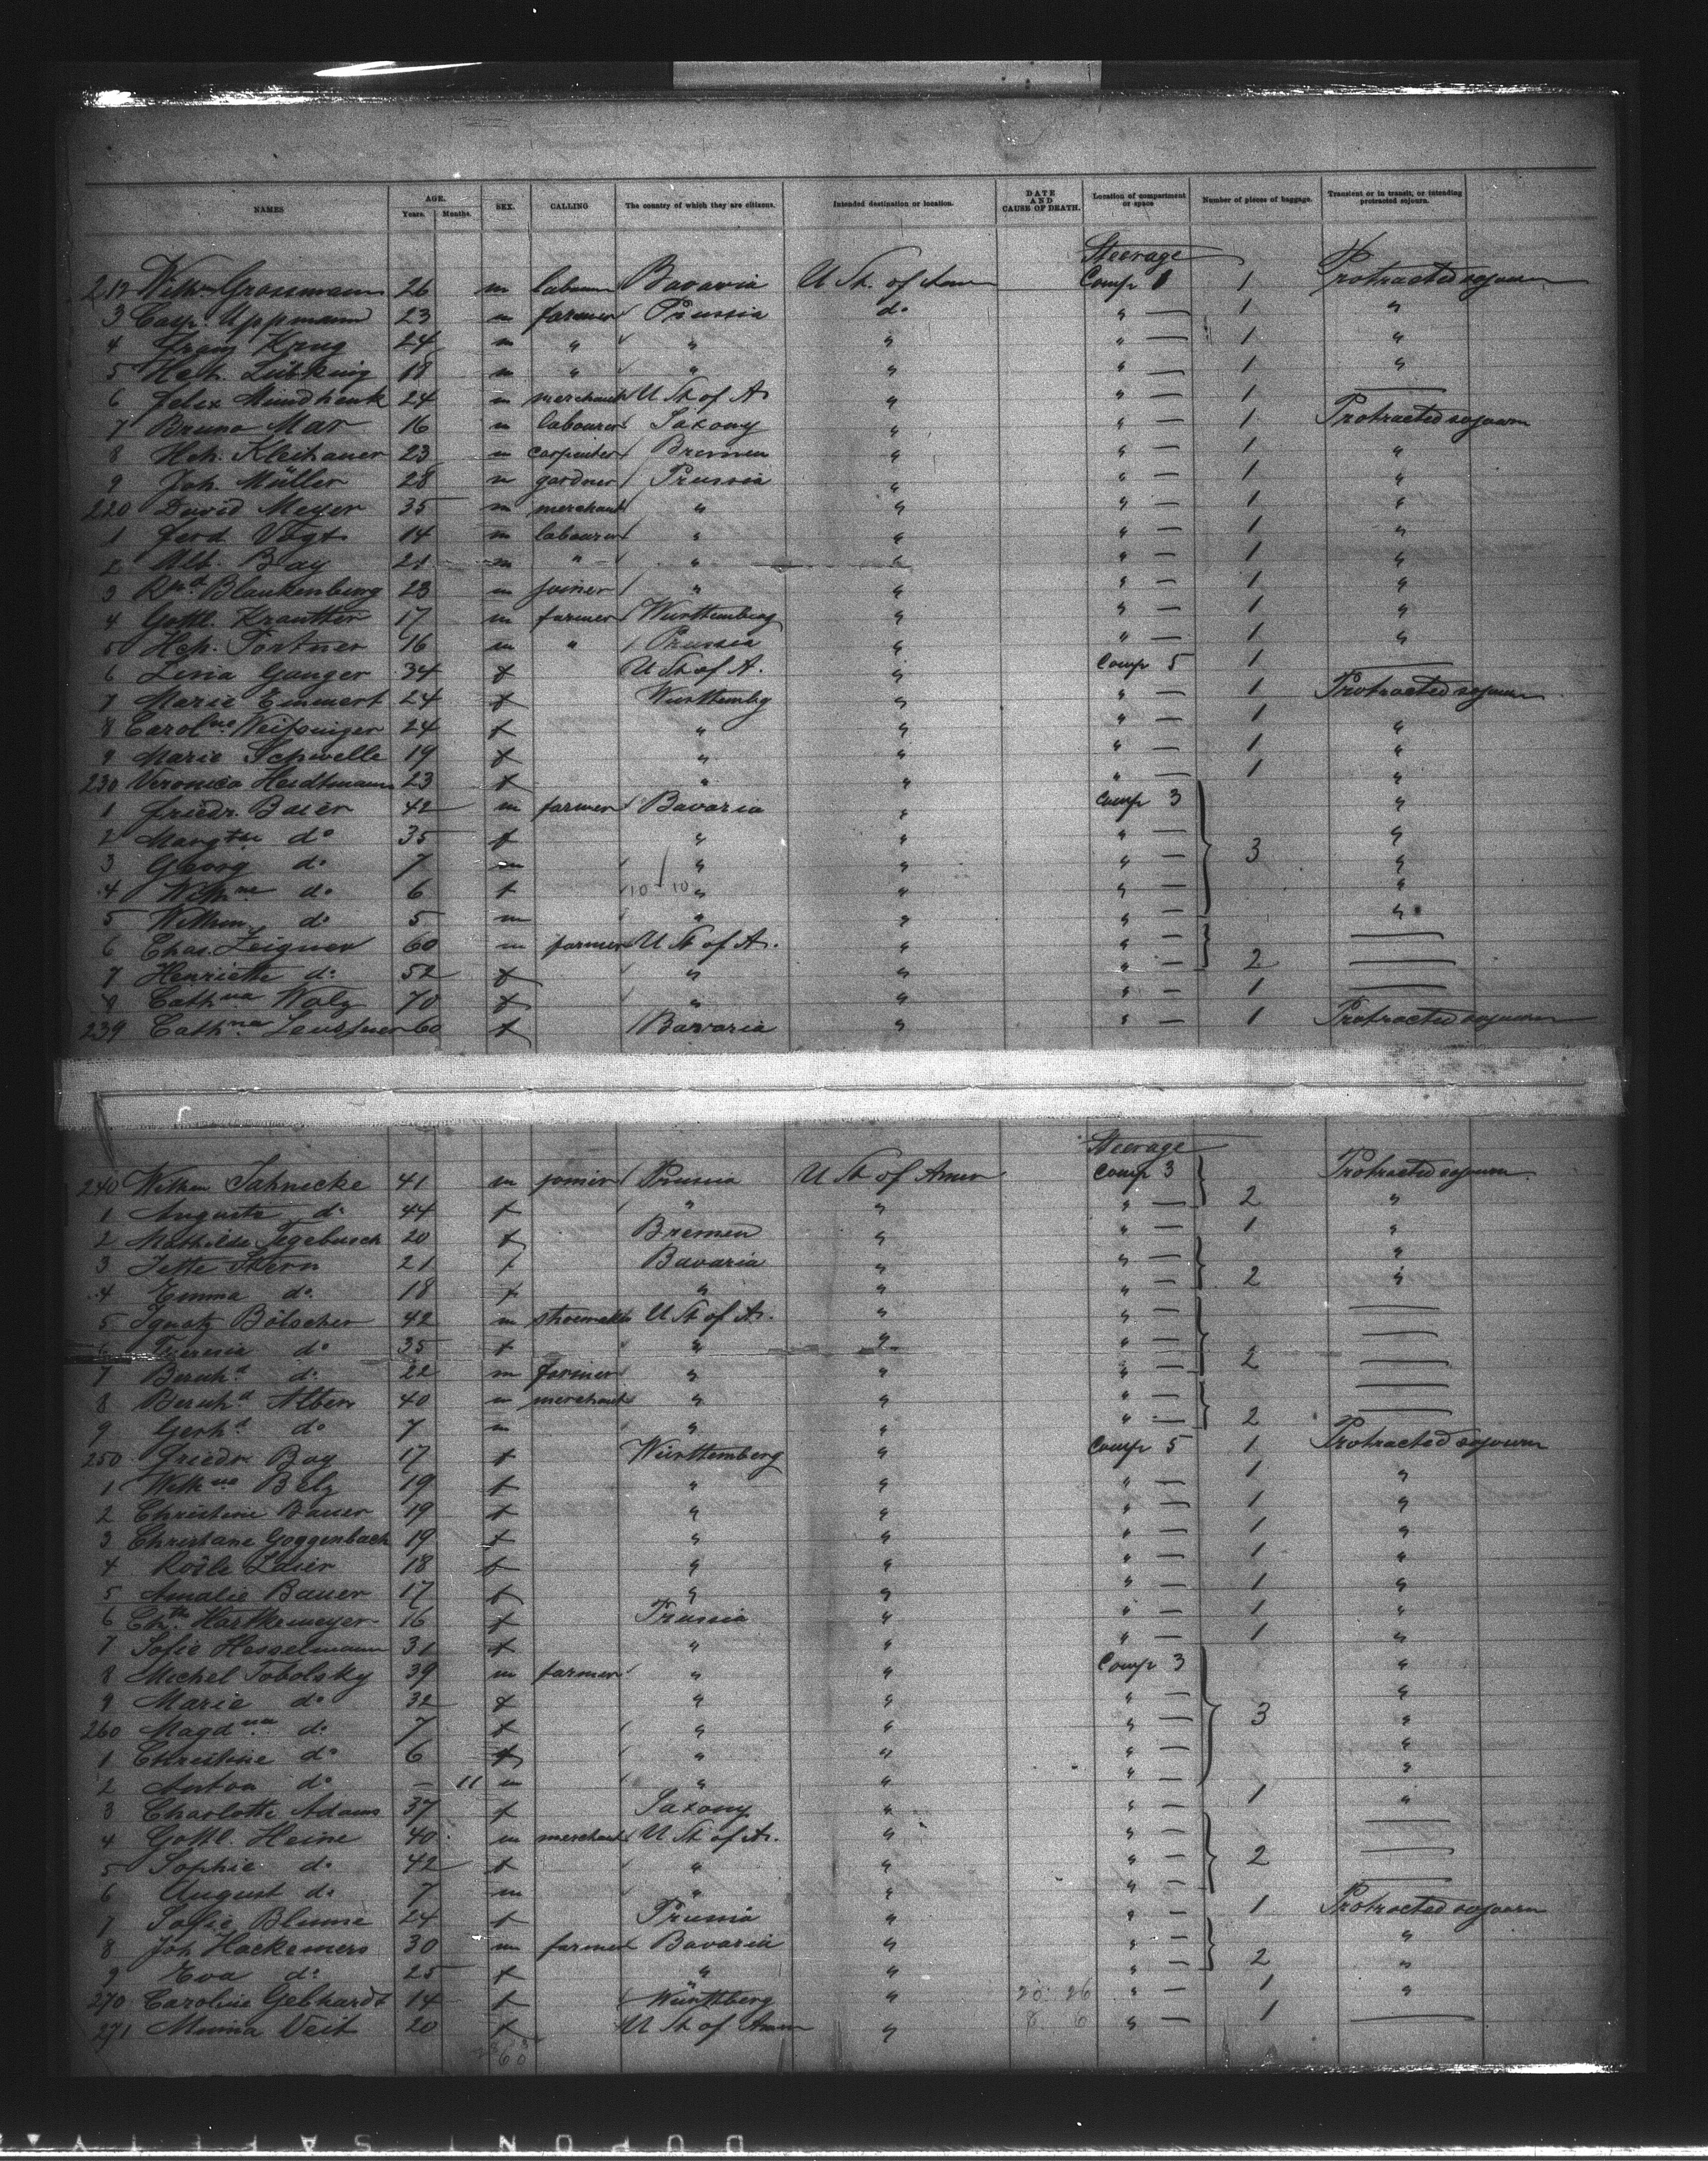 NAMES AGE. Years. Months. SEX. CALLING The country of which they are citizens. Intended destination or location. DATE AND CAUSE OF DEATH. Location of compartment or space Number of pieces of baggage. Transient or in transit, or intending protracted sojourn.
Steerage
212 Wilhm Grossmann 26 m labourer Bavaria U St. of Am Comp 1 1 Protracted sojourn
3 Casp. Uppmann 23 m farmer Prussia do " — 1 "
4 Franz Krug 24 m " " " " — 1 "
5 Hch. Lübking 18 m " " " " — 1 "
6 Felix Mundhenk 24 m merchant U St of A. " " — 1 —
7 Bruno Mar 16 m labourer Saxony " " — 1 Protracted sojourn
8 Hch. Kleihauer 23 m carpenter Bremen " " — 1 "
9 Joh. Müller 28 m gardner Prussia " " — 1 "
220 David Meyer 35 m merchant " " " — 1 "
1 Ferd Vogt 14 m labourer " " " — 1 "
2 Alb. Bay 21 m " " " " — 1 "
3 Rud Blankenburg 23 m joiner " " " — 1 "
4 Gottl. Krautter 17 m farmer Württemberg " " — 1 "
5 Hch. Fortner 16 m " Prussia " " — 1 "
6 Lina Ganger 34 f U St of A. " Comp 5 1 —
7 Marie Emmert 24 f Württembg " " — 1 Protracted sojourn
8 Carolne Weissinger 24 f " " " — 1 "
9 Marie Schwelle 19 f " " " — 1 "
230 Veronica Heidtmann 23 f " " " — 1 "
1 Friedr. Baier 42 m farmer Bavaria " Comp 3 "
2 Margthe do 35 f " " " — "
3 Georg do 7 m " " " — 3 "
4 Wilhne do 6 f 10/10 " " " — "
5 Wilhm do 5 m " " " — "
6 Chas. Zeigner 60 m farmer U St of A. " " — —
7 Henriette do 52 f " " " — 2 —
8 Cathna Walz 70 f " " " — 1 —
239 Cathna 60 f Bavaria " " — 1 Protracted sojourn
Steerage
240 Wilhm Jahnicke 41 m joiner Prussia U St of Amer Comp 3 Protracted sojourn
1 Augusta do 44 f " " " — 2 "
2 Mathilde Tegebusch 20 f Bremen " " — 1 "
3 Jette Stern 21 f Bavaria " " — "
4 Emma do 18 f " " " — 2 "
5 Ignatz Bölscher 42 m shoemaker U St of A. " " — —
6 Theresia do 35 f " " " — —
7 Bernhd do 22 m farmer " " " — 2 —
8 Bernhd Alben 40 m merchant " " " — —
9 Gerhd do 7 m " " " — 2 —
250 Friedr. Bay 17 f Württemberg " Comp 5 1 Protracted sojourn
1 Wilhne Belz 19 f " " " — 1 "
2 Christine Bauer 19 f " " " — 1 "
3 Christane Goggenbach 19 f " " " — 1 "
4 Rosle Laier 18 f " " " — 1 "
5 Amalie Bauer 17 f " " " — 1 "
6 Hartkemeyer 16 f Prussia " " — 1 "
7 Sofie Hesselmann 31 f " " " — 1 "
8 Michel Tobolsky 39 m farmer " " Comp 3 "
9 Marie do 32 f " " " — "
260 Magdna do 7 f " " " — 3 "
1 Christine do 6 f " " " — "
2 Anton do — 11 m " " " — "
3 Charlotte Adams 37 f Saxony " " — 1 "
4 Gottl. Heine 40 m merchant U St of A. " " — —
5 Sophie do 42 f " " " — 2 —
6 August do 7 m " " " — —
7 Sofie Blume 24 f Prussia " " — 1 Protracted sojourn
8 Joh Hackemers 30 m farmer Bavaria " " — "
9 Eva do 25 f " " " — 2 "
270 Caroline Gebhardt 14 f Württbg " 20 26 " — 1 "
271 Minna Veit 20 f U St of Amer " 8 6 " — 1 —
DUPONT SAFETY